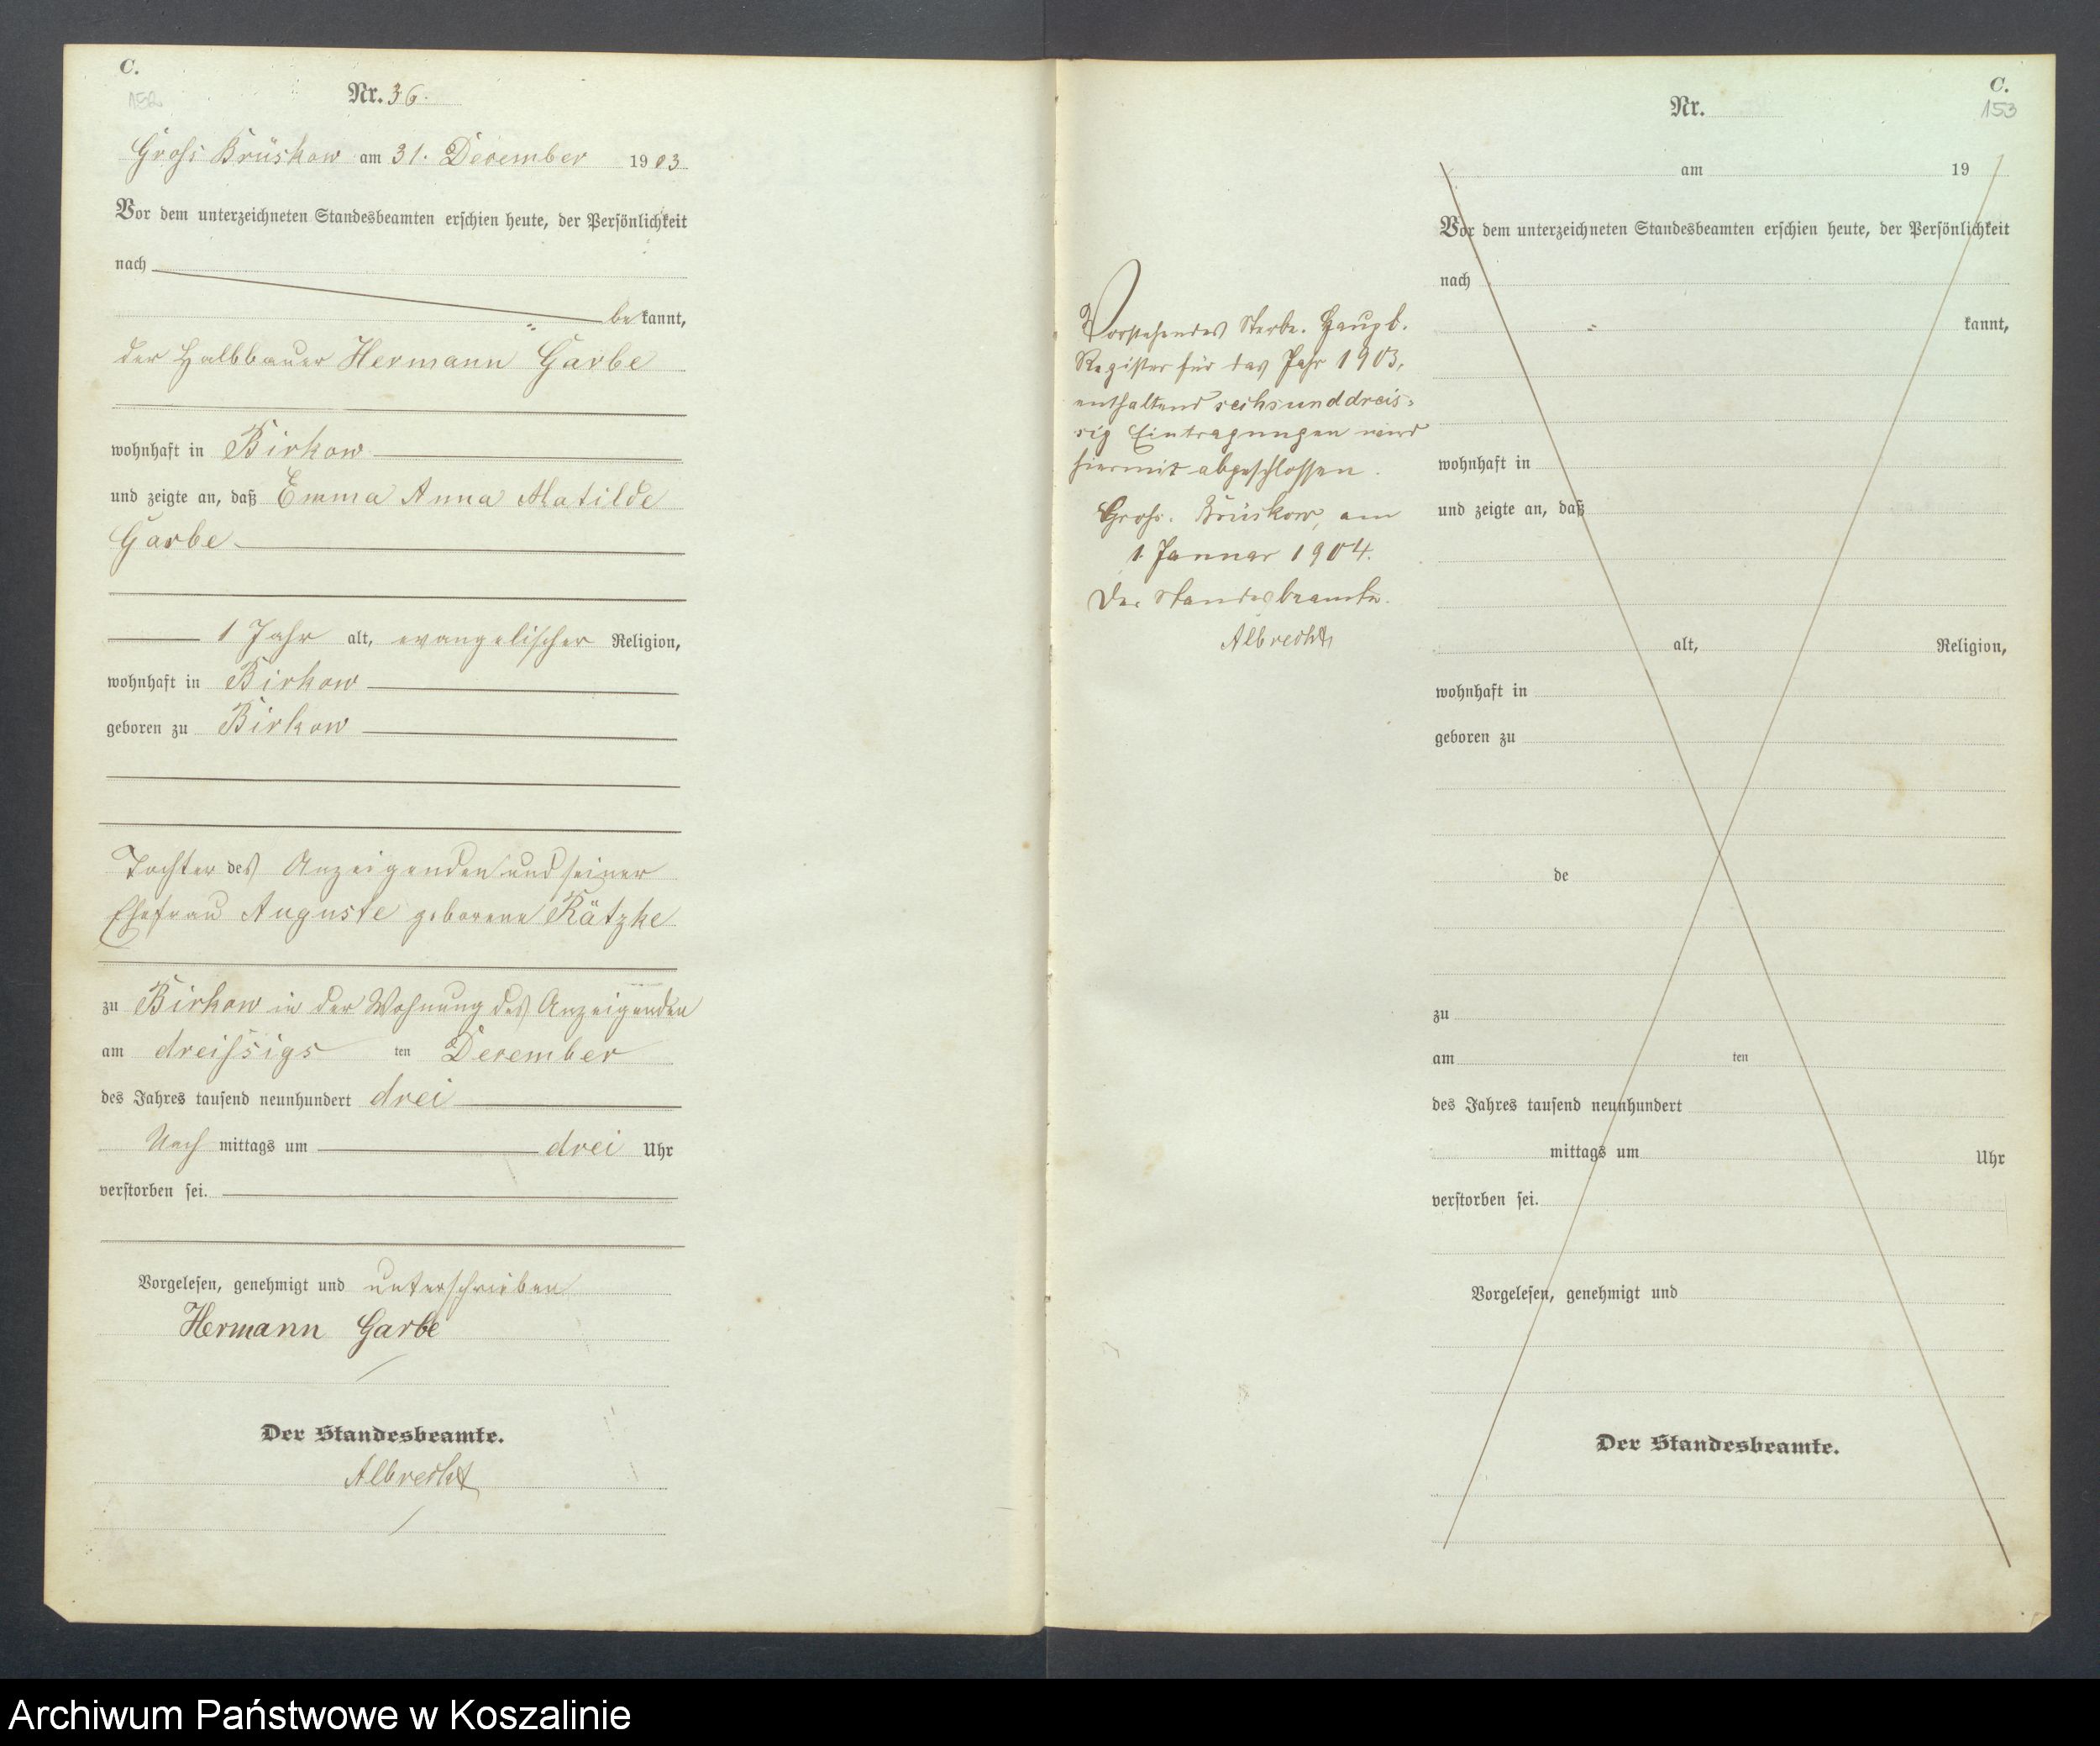 C.
152
Nr. 36.
Gross Brüskow am 31. Dezember 1903
Vor dem unterzeichneten Standesbeamten erschien heute, der Persönlichkeit
nach
bekannt,
der Halbbauer Hermann Garbe
wohnhaft in Birkow
und zeigte an, daß Emma Anna Matilde
Garbe
1 Jahr alt, evangelischer Religion,
wohnhaft in Birkow
geboren zu Birkow
Tochter des Anzeigenden und seiner
Ehefrau Auguste geborene Rätzke
zu Birkow in der Wohnung des Anzeigenden
am dreissigsten Dezember
des Jahres tausend neunhundert drei
Nachmittags um drei Uhr
verstorben sei.
Vorgelesen, genehmigt und unterschrieben
Hermann Garbe
Der Standesbeamte.
Albrecht
Vorstehendes Sterbe-Haupt-
Register für das Jahr 1903,
enthaltend sechsunddreis-
sig Eintragungen wird
hiermit abgeschlossen.
Gross-Brüskow, am
1. Januar 1904.
Der Standesbeamte.
Albrecht
C.
153
Nr.
am 19
Vor dem unterzeichneten Standesbeamten erschien heute, der Persönlichkeit
nach
kannt,
wohnhaft in
und zeigte an, daß
alt, Religion,
wohnhaft in
geboren zu
de
zu
am ten
des Jahres tausend neunhundert
mittags um Uhr
verstorben sei.
Vorgelesen, genehmigt und
Der Standesbeamte.
Archiwum Państwowe w Koszalinie